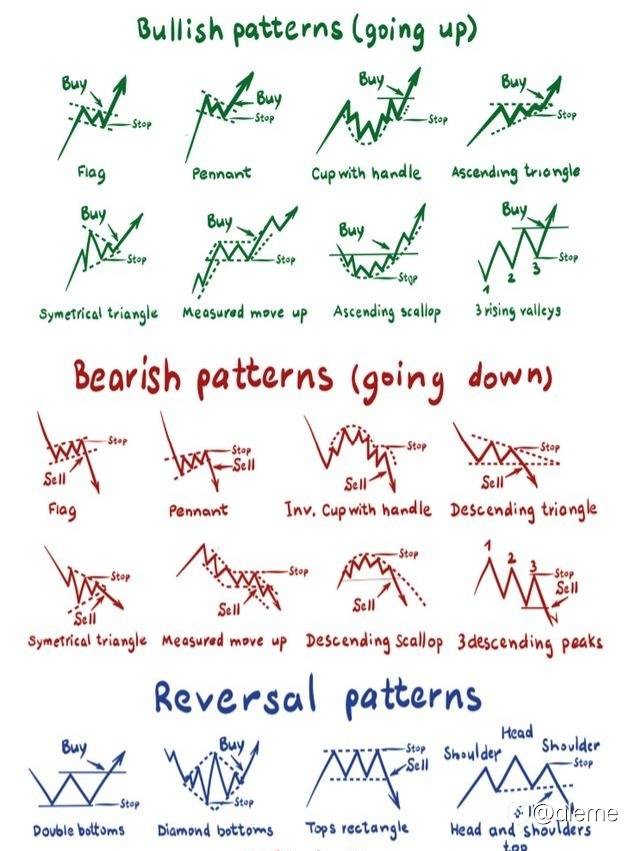 Bullish patterns (going up)
Buy
Stop
Flag
Buy
Stop
Pennant
Buy
Stop
Cup with handle
Buy
Stop
Ascending triangle
Buy
Stop
Symetrical triangle
Buy
Stop
Measured move up
Buy
Stop
Ascending scallop
Buy
Stop
1
2
3
3 rising valleys
Bearish patterns (going down)
Stop
Sell
Flag
Stop
Sell
Pennant
Stop
Sell
Inv. Cup with handle
Stop
Sell
Descending triangle
Stop
Sell
Symetrical triangle
Stop
Sell
Measured move up
Stop
Sell
Descending Scallop
1
2
3
Stop
Sell
3 descending peaks
Reversal patterns
Buy
Stop
Double bottoms
Buy
Stop
Diamond bottoms
Stop
Sell
Tops rectangle
Head
Shoulder
Shoulder
Stop
Head and shoulders
top